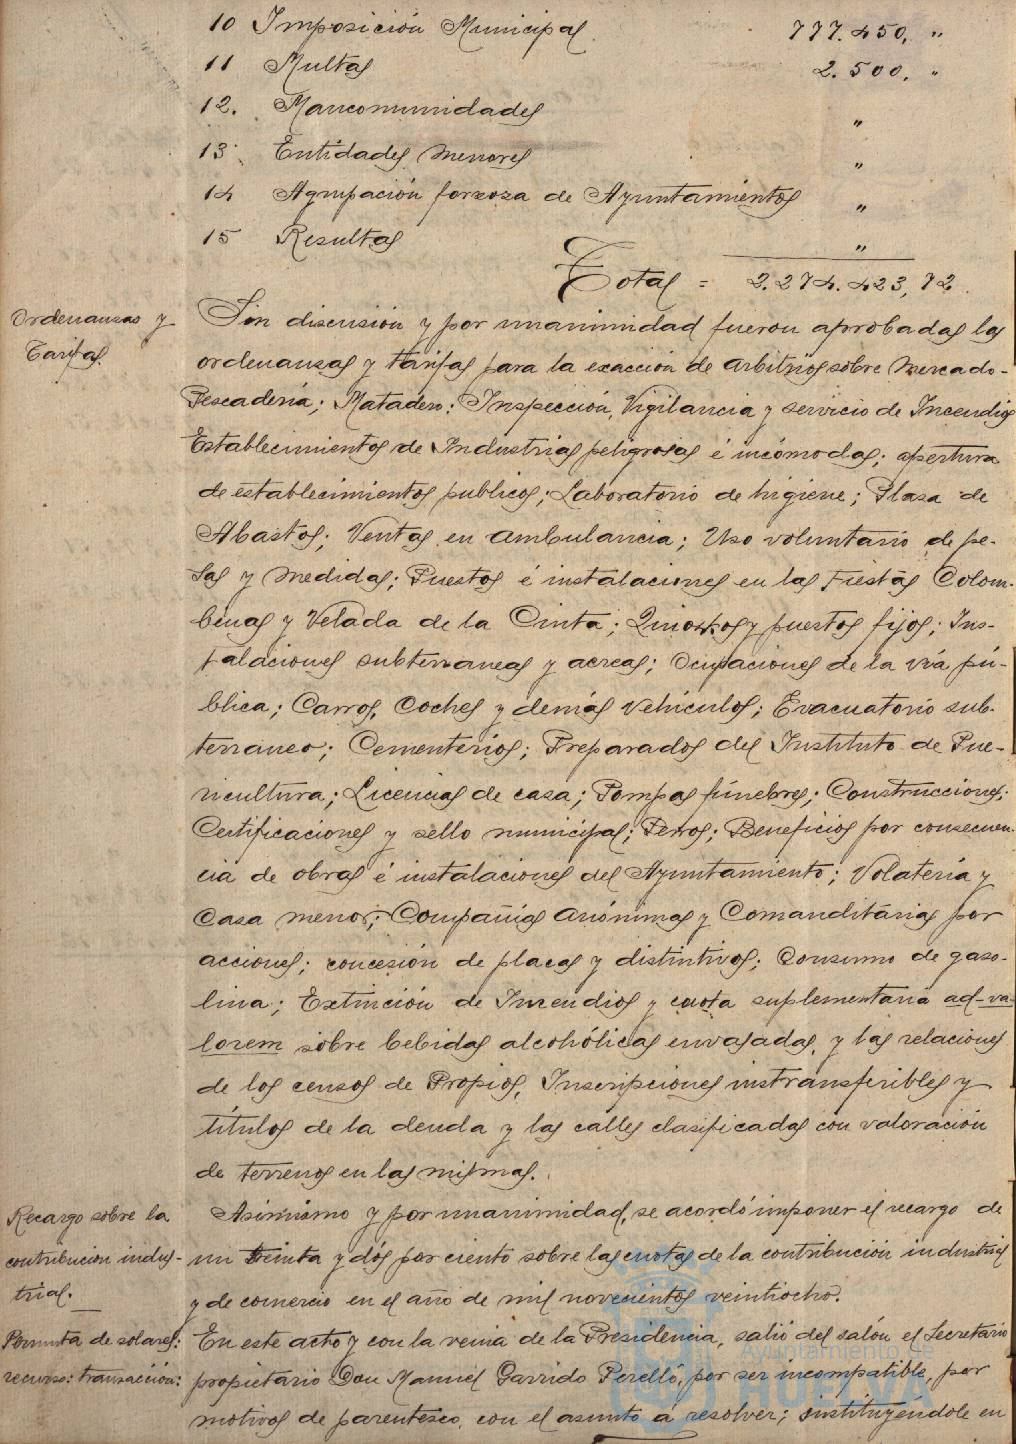 10 Imposición Municipal 777.450, "
11 Multas 2.500, "
12. Mancomunidades "
13 Entidades menores "
14 Agrupación forzosa de Ayuntamientos "
15 Resultas "
Total = 2.274.423,72.
Ordenanzas y
Tarifas.
Sin discusión y por unanimidad fueron aprobadas las
ordenanzas y tarifas para la exacción de arbitrios sobre Mercado-
Pescadería; Matadero; Inspección, Vigilancia y servicio de Incendios
Establecimientos de Industrias peligrosas é incómodas; apertura
de establecimientos publicos; Laboratorio de higiene; Plasa de
Abastos; Ventas en ambulancia; Uso voluntario de pe-
sas y medidas; Puestos é instalaciones en las Fiestas Colom-
binas y Velada de la Cinta; Quioskos y puestos fijos; Ins-
talaciones subterraneas y aereas; Ocupaciones de la vía pú-
blica; Carros, Coches y demás vehículos; Evacuatorio sub-
terraneo; Cementerios; Preparados del Instituto de Pue-
ricultura; Licencias de casa; Pompas fúnebres; Construcciones;
Certificaciones y sello municipal; Perros; Beneficios por consecuen-
cia de obras é instalaciones del Ayuntamiento; Volatería y
Casa menor; Compañías Anónimas y Comanditarias por
acciones; concesión de placas y distintivos; Consumo de gaso-
lina; Extinción de Incendios y cuota suplementaria ad-va-
lorem sobre bebidas alcohólicas envasadas, y las relaciones
de los censos de Propios, Inscripciones instransferibles y
títulos de la deuda y las calles clasificadas con valoración
de terrenos en las mismas.
Recargo sobre la
contribucion indus-
trial.
Asimismo y por unanimidad, se acordó imponer el recargo de
un treinta y dós por ciento sobre las cuotas de la contribución industrial
y de comercio en el año de mil novecientos veintiocho.
Permuta de solares:
recurso: transacción:
En este acto y con la venia de la Presidencia, salió del salón el Secretario
propietario Don Manuel Garrido Perelló, por ser incompatible, por
motivos de parentesco, con el asunto á resolver; sustituyéndole en
Ayuntamiento de
HUELVA